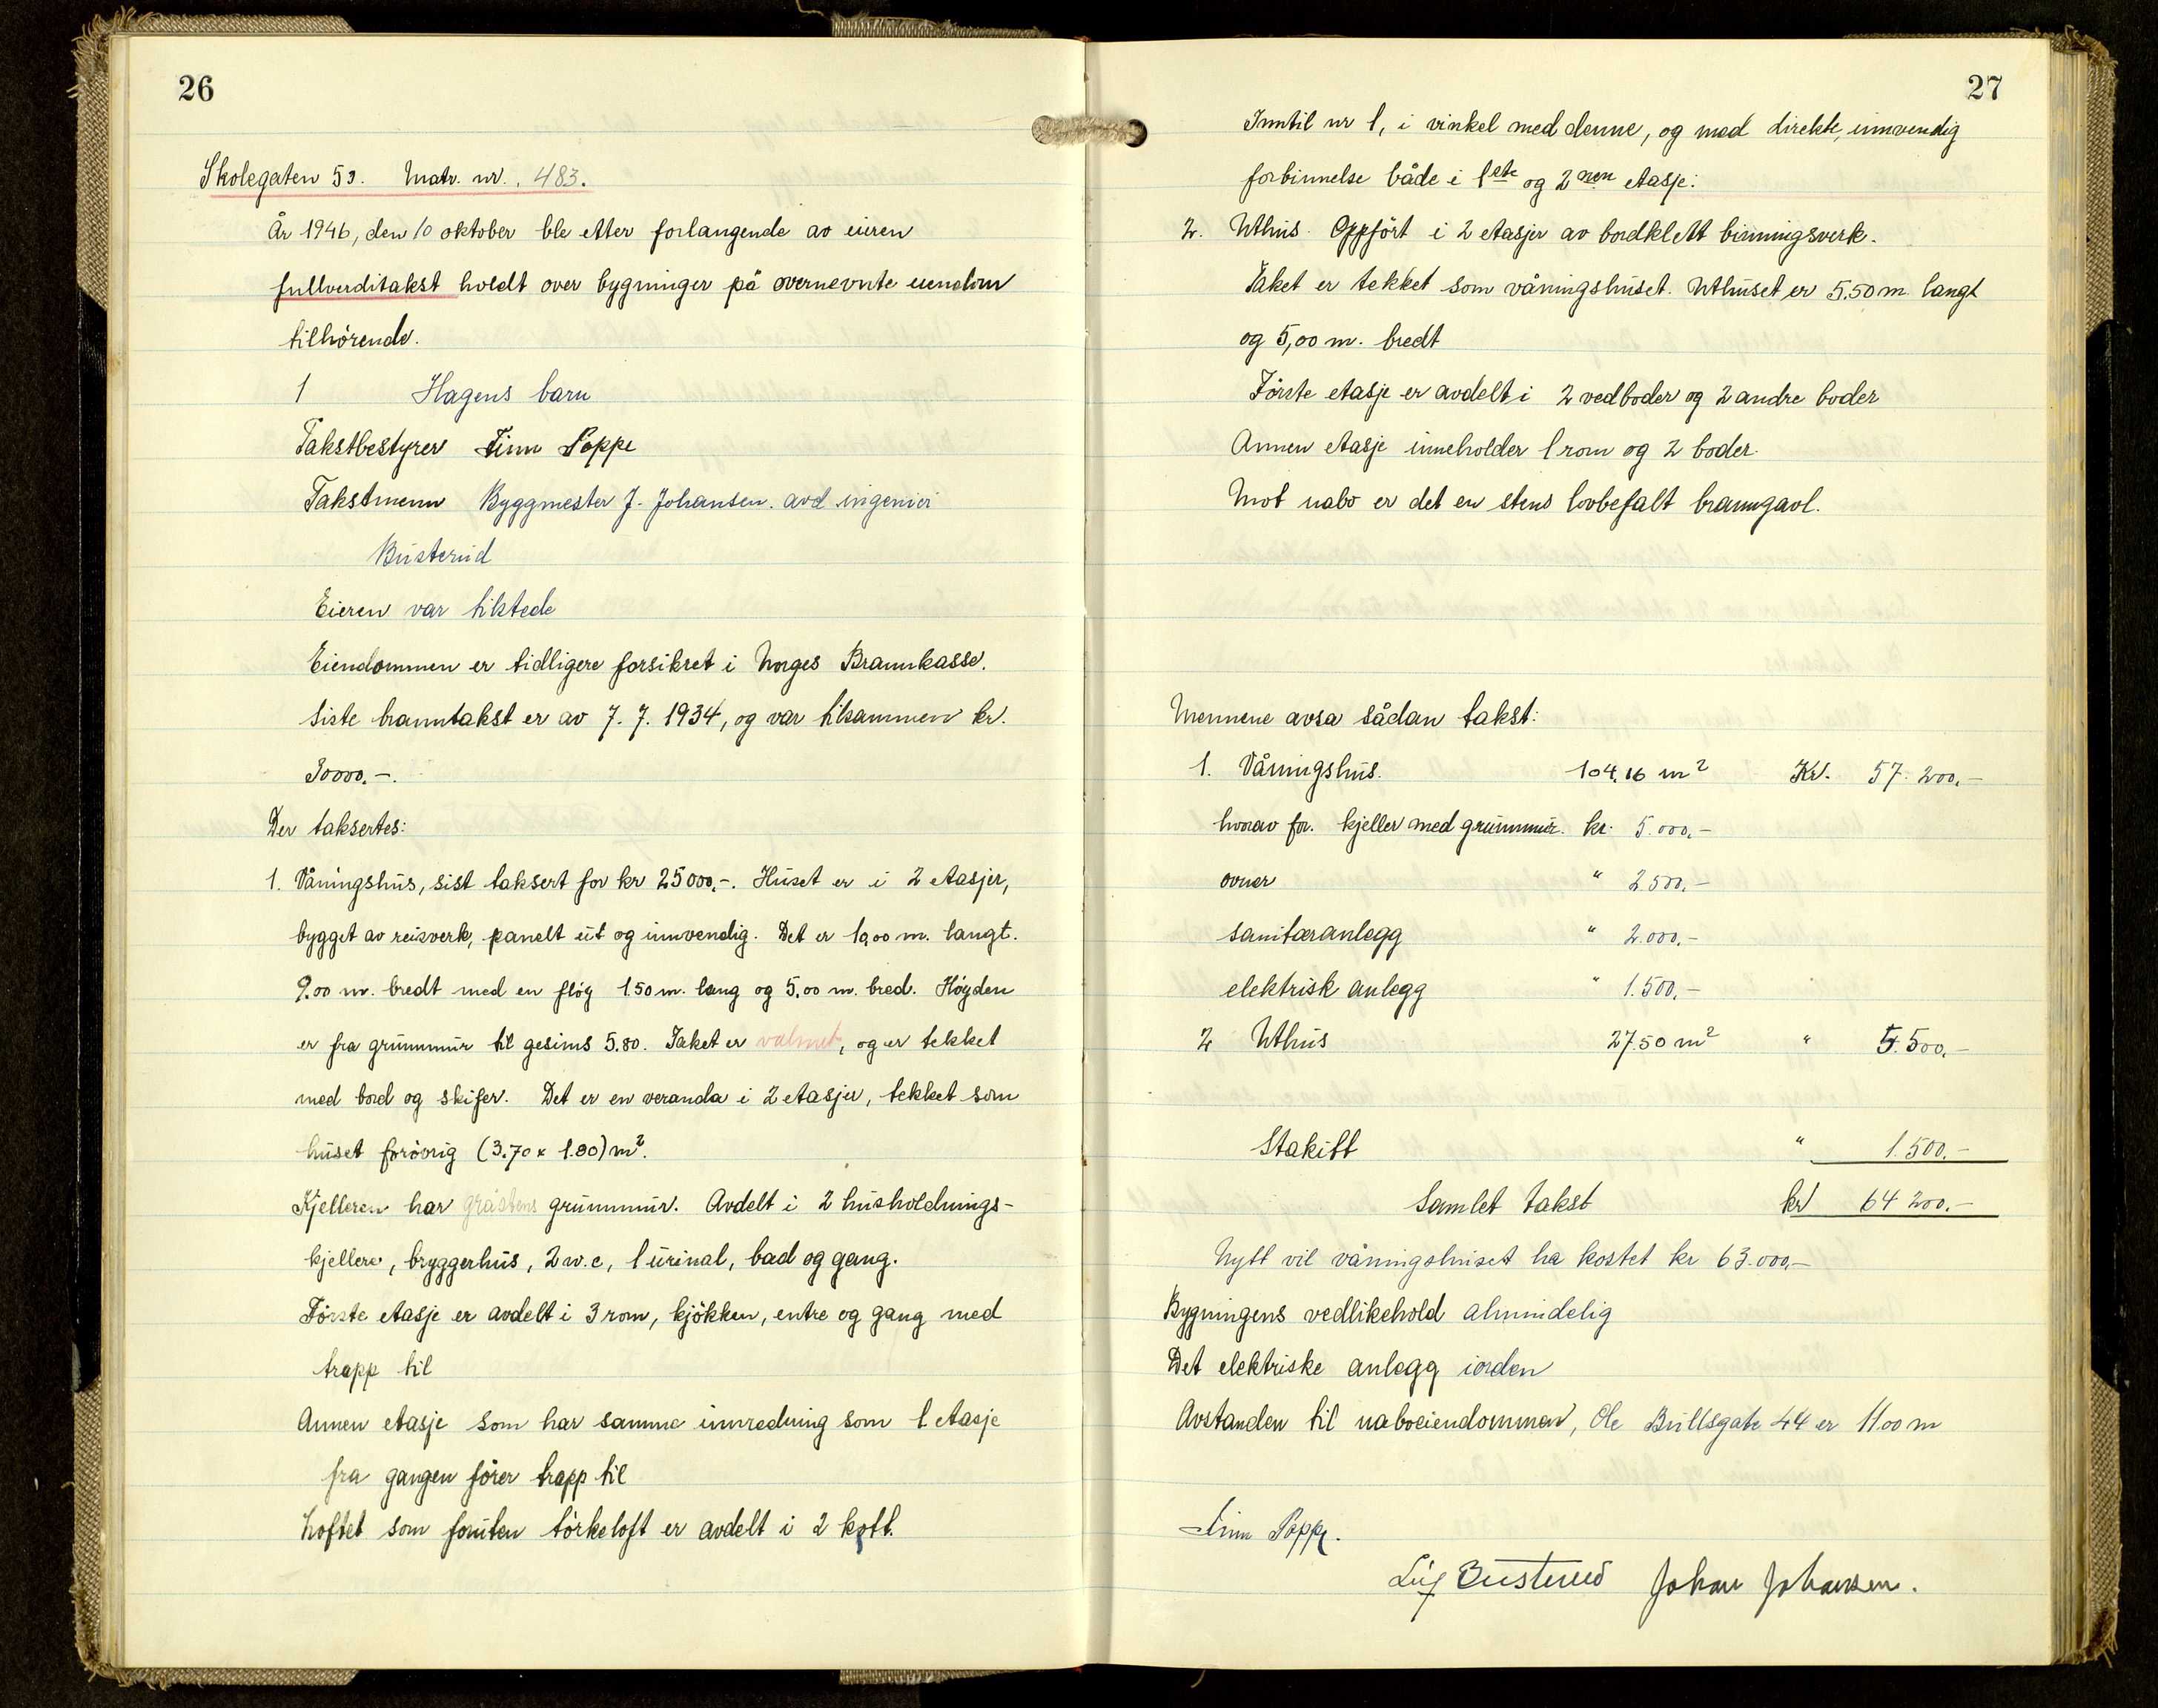 26
Skolegaten 53. Matr. nr. 483.
År 1946, den 10 oktober ble etter forlangende av eieren
fullverditakst holdt over bygninger på overnevnte eiendom
tilhörende.
1 Hagens barn
Takstbestyrer Finn Poppe
Takstmenn Byggmester J. Johansen. avd ingeniör
Busterud
Eieren var tilstede
Eiendommen er tidligere forsikret i Norges Brannkasse.
Siste branntakst er av 7. 7. 1934, og var tilsammen kr.
30000.-.
Der taksertes:
1. Våningshus, sist taksert for kr 25000,-. Huset er i 2 etasjer,
bygget av reisverk, panelt ut og innvendig. Det er 10,00 m. langt.
9.00 m. bredt med en flöy 1.50 m. lang og 5,00 m. bred. Höyden
er fra grunnmur til gesims 5.80. Taket er valmet, og er tekket
med bord og skifer. Det er en veranda i 2 etasjer, tekket som
huset forövrig (3.70 x 1.80) m².
Kjelleren har gråstens grunnmur. Avdelt i 2 husholdnings-
kjellere, bryggerhus, 2 w.c, 1 urinal, bad og gang.
Förste etasje er avdelt i 3 rom, kjökken, entre og gang med
trapp til
Annen etasje som har samme innredning som 1 etasje
fra gangen förer trapp til
Loftet som foruten törkeloft er avdelt i 2 kott.
27
Inntil nr 1, i vinkel med denne, og med direkte, innvendig
forbinnelse både i 1ste og 2nen etasje:
2. Uthus. Oppfört i 2 etasjer av bordklett binningsverk.
Taket er tekket som våningshuset. Uthuset er 5.50 m langt
og 5,00 m. bredt
Förste etasje er avdelt i 2 vedboder og 2 andre boder
Annen etasje inneholder 1 rom og 2 boder.
Mot nabo er det en stens lovbefalt branngavl.
Mennene avsa sådan takst:
1. Våningshus. 104,16 m² Kr. 57.200,-
hvorav for. kjeller med grunnmur. kr. 5.000,-
ovner " 2.500,-
sanitæranlegg " 2.000,-
elektrisk anlegg " 1.500,-
2 Uthus 27.50 m² " 5.500,-
Stakitt " 1.500.-
Samlet takst kr 64 200.-
Nytt vil våningshuset ha kostet kr 63.000,-
Bygningens vedlikehold almindelig
Det elektriske anlegg iorden
Avstanden til naboeiendommen, Ole Bullsgate 44 er 11.00 m
Finn Poppe.
Busterud Johan Johansen.